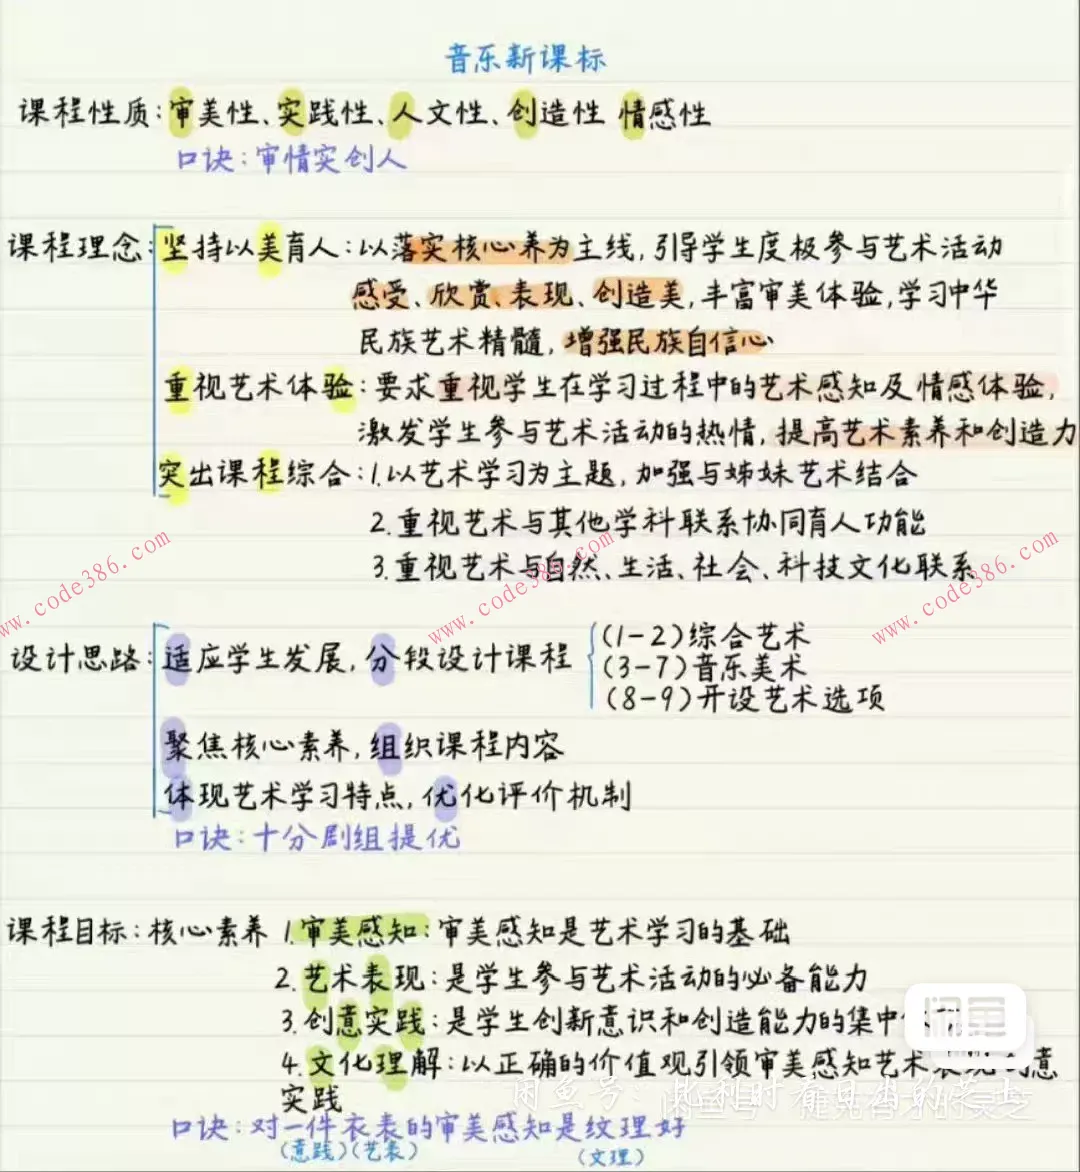 音乐新课标
课程性质：审美性、实践性、人文性、创造性 情感性
口诀：审情实创人
课程理念：坚持以美育人：以落实核心养为主线，引导学生度极参与艺术活动
感受、欣赏、表现、创造美，丰富审美体验，学习中华
民族艺术精髓，增强民族自信心
重视艺术体验：要求重视学生在学习过程中的艺术感知及情感体验，
激发学生参与艺术活动的热情，提高艺术素养和创造力
突出课程综合：1.以艺术学习为主题，加强与姊妹艺术结合
2.重视艺术与其他学科联系协同育人功能
3.重视艺术与自然、生活、社会、科技文化联系
www.code386.com
www.code386.com
www.code386.com
设计思路：适应学生发展，分段设计课程
(1-2)综合艺术
(3-7)音乐美术
(8-9)开设艺术选项
聚焦核心素养，组织课程内容
体现艺术学习特点，优化评价机制
口诀：十分剧组提优
课程目标：核心素养 1.审美感知：审美感知是艺术学习的基础
2.艺术表现：是学生参与艺术活动的必备能力
3.创意实践：是学生创新意识和创造能力的集中
闲鱼
4.文化理解：以正确的价值观引领审美感知艺术表现创意
实践
闲鱼号：
口诀：对一件衣表的审美感知是纹理好
(意践)(艺表)
(文理)